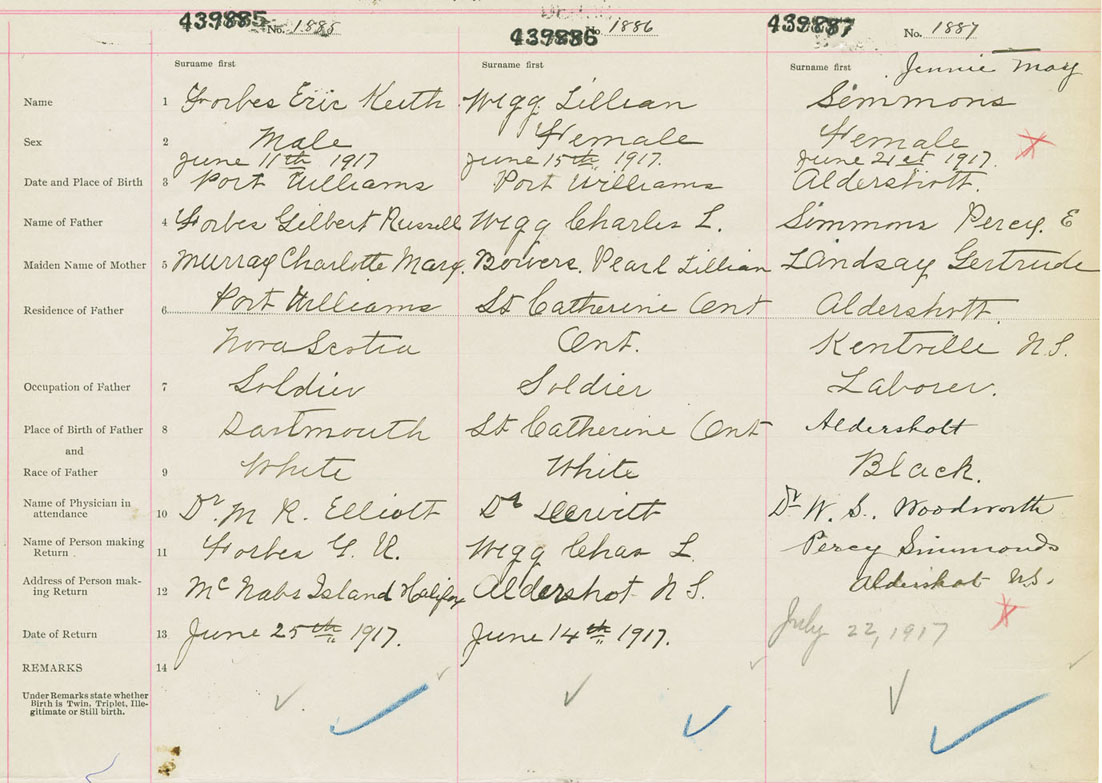 439885 No. 1885
439886 No 1886
439887 No. 1887
Surname first
Surname first
Surname first Jennie May
Name 1 Forbes Eric Keith Wigg Lillian Simmons
Sex 2 Male Female Female
June 11th 1917 June 15th 1917. June 21st 1917.
Date and Place of Birth 3 Port Williams Port Williams Aldershott.
Name of Father 4 Forbes Gilbert Russell Wigg Charles L. Simmons Percy. E
Maiden Name of Mother 5 Murray Charlotte Mary. Bowers. Pearl Lillian Lindsay Gertrude
Residence of Father 6 Port Williams St Catherine Ont Aldershott.
Nova Scotia Ont. Kentville N.S.
Occupation of Father 7 Soldier Soldier Laborer.
Place of Birth of Father 8 Dartmouth St Catherine Ont Aldershott
and
Race of Father 9 White White Black.
Name of Physician in
attendance 10 Dr. M R. Elliott Dr Dewitt Dr W. S. Woodworth
Name of Person making
Return 11 Forbes G. R. Wigg Chas L Percy Simmonds
Address of Person mak-
ing Return 12 McNabs Island Halifax Aldershot N S. Aldershot N.S.
Date of Return 13 June 25th 1917. June 14th 1917. July 22, 1917
REMARKS 14
Under Remarks state whether
Birth is Twin, Triplet, Ille-
gitimate or Still birth.